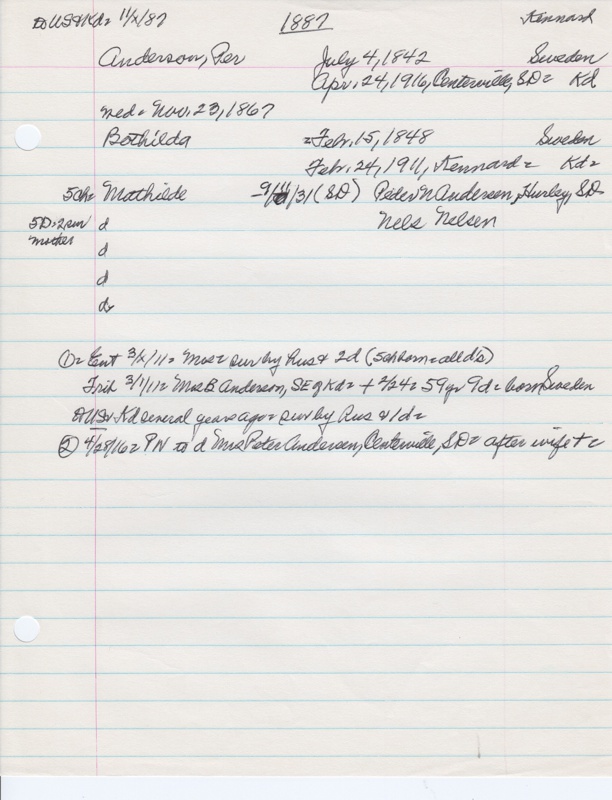 to US & Kd = 11/X/87 1887 Kennard
Anderson, Per July 4, 1842 Sweden
Apr. 24, 1916, Centerville, S.D. = Kd
med = Nov. 23, 1867
Bothilda = Febr. 15, 1848 Sweden
Febr. 24, 1911, Kennard = Kd =
5ch = Mathilde -9/11/31 (SD) Peter N Andersen, Hurley, S.D.
5D = 2 sur
mother d Nels Nelsen
d
d
d
① = Ent 3/X/11 = Mrs = sur by hus & 2d (5ch born = all d's)
Trib 3/1/11 = Mrs B Anderson, SE of Kd = + 2/24 = 59 yr 9d = born Sweden
to US & Kd several years ago = sur by hus & 1d =
② 4/28/16 = PN to d Mrs Peter Andersen, Centerville, S.D. = after wife + =